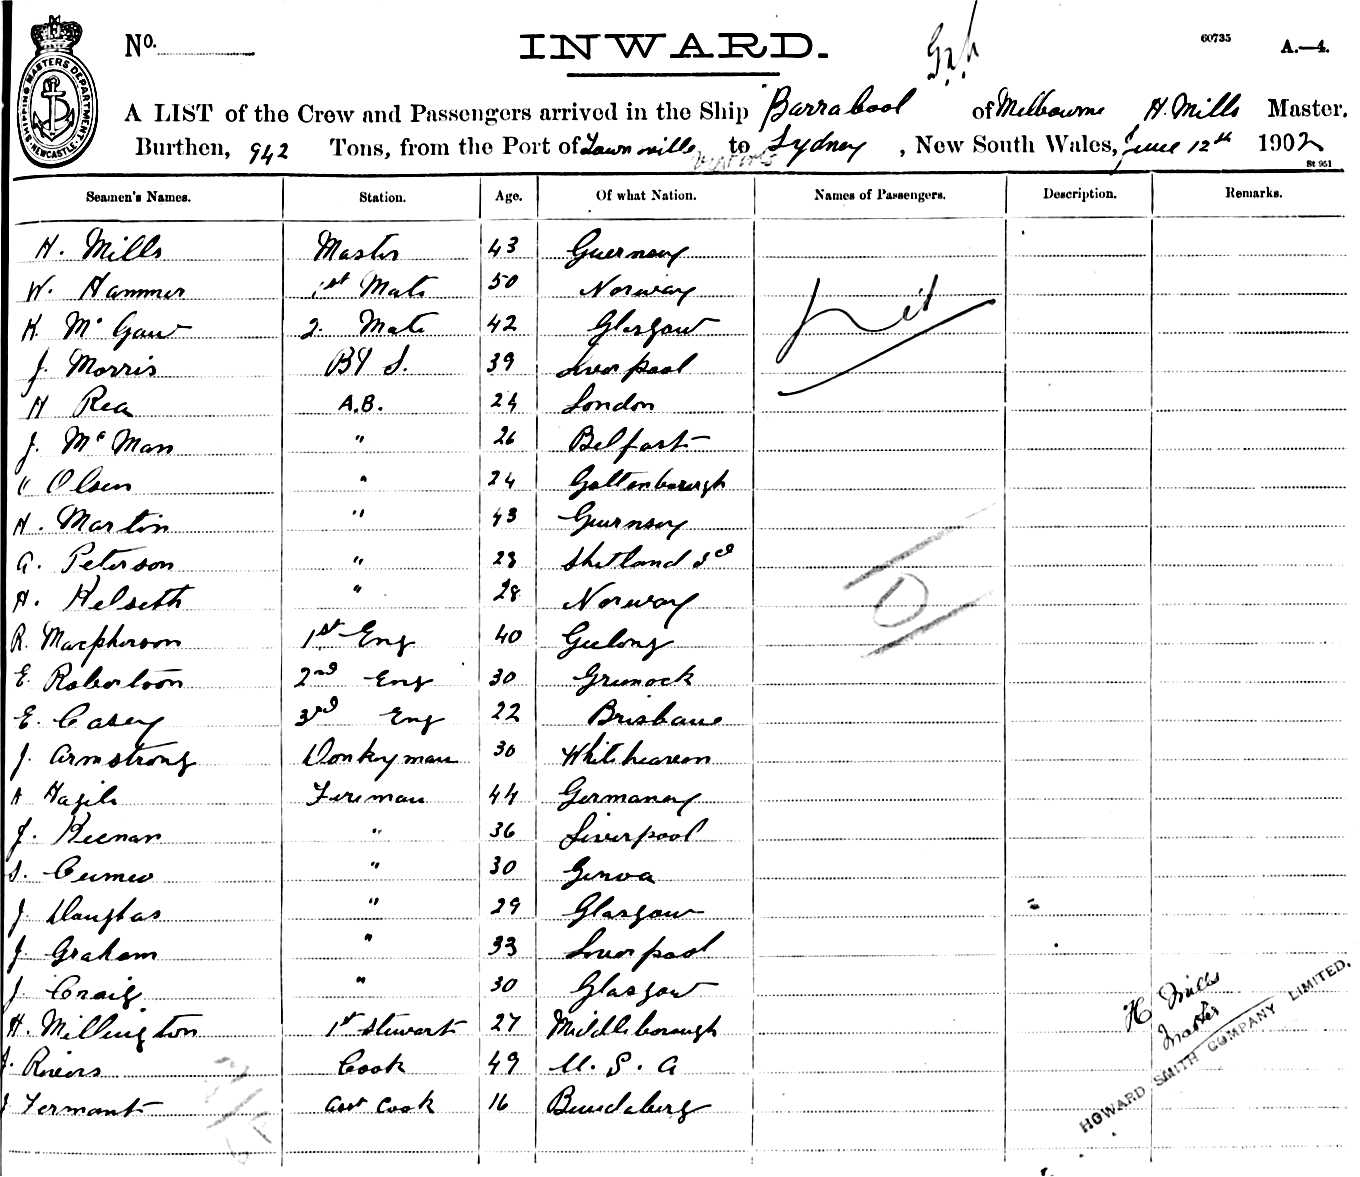 No. INWARD. 60735 A.—4.
SHIPPING MASTERS DEPARTMENT. NEWCASTLE.
A LIST of the Crew and Passengers arrived in the Ship Barrabool of Melbourne H. Mills Master.
Burthen, 942 Tons, from the Port of Townsville to Sydney, New South Wales, June 12th 1902
St 951
Seamen's Names. Station. Age. Of what Nation. Names of Passengers. Description. Remarks.
H. Mills Master 43 Guernsey
W. Hammer 1st Mate 50 Norway
K. McGaw 2. Mate 42 Glasgow
Nil
J. Morris 39 Liverpool
H Rea A.B. 24 London
J. McMan " 26 Belfast
" Olsen " 24 Gottenborough
H. Martin " 43 Guernsey
A. Peterson " 28 Shetland Sd
H. Helseth " 28 Norway
R. Macpherson 1st Eng 40 Geelong
E. Robertson 2nd Eng 30 Greenock
E. Casey 3rd Eng 22 Brisbane
J. Armstrong Donkyman 30 Whitehaven
Fireman 44 Germaney
J. Keenan " 36 Liverpool
S. " 30 Genoa
J. Douglas " 29 Glasgow
J. Graham " 33 Liverpool
J. Craig " 30 Glasgow
H. Millington 1st Stewart 27 Middleborough
J. Rivers Cook 49 U. S. A
J Termant Asst Cook 16 Bundaberg
H Mills
Master
HOWARD SMITH COMPANY LIMITED.